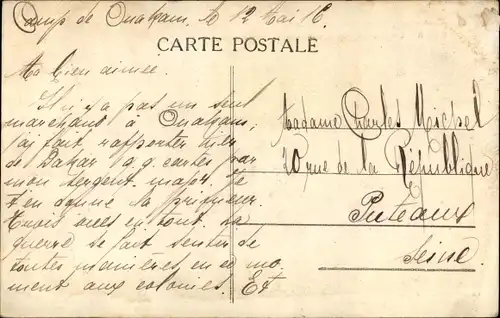 Camp de Ouakam, le 12 Mai 16.
CARTE POSTALE
Ma bien aimée.
Il n'y a pas un seul
marchand à Ouakam,
j'ai fait rapporter hier
de Dakar q.q. cartes par
mon sergent major. Je
t'en donne la primeur.
trois vues en tout. La
guerre se fait sentir de
toutes manières en ce mo
ment aux colonies. Et
Madame Charles Michel
30 rue de la République
Puteaux
Seine.